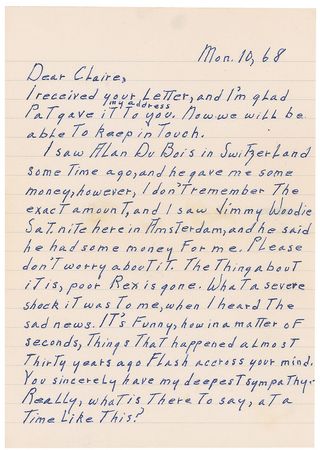 Mon. 10, 68
Dear Claire,
I received your Letter, and I'm glad
my address
Pat gave it To you. Now we will be
able To Keep in Touch.
I saw Alan Du Bois in Switzerland
some Time ago, and he gave me some
money, however, I don't remember The
exact amount, and I saw Jimmy Woodie
Sat. nite here in Amsterdam, and he said
he had some money For me. Please
don't worry about it. The Thing about
it is, poor Rex is gone. What a severe
shock it was To me, when I heard The
sad news. IT's Funny, how in a matter oF
seconds, Things That happened almost
Thirty years ago Flash accross your mind.
You sincerely have my deepest sympathy.
Really, what is There To say, at a
Time Like This?